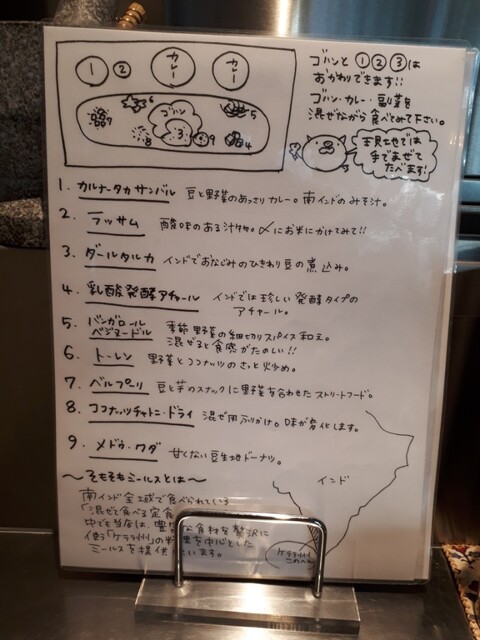 ① ② カレー カレー
ゴハン
3
6
5
7
8
9
4
ゴハンと①②③は
おかわりできます!!
ゴハン・カレー・副菜を
混ぜながら食べてみて下さい。
手でまぜて
たべます!
1. カルナータカサンバル 豆と野菜のあっさりカレー。南インドのみそ汁。
2. ラッサム 酸味のある汁物。〆にお米にかけてみて!!
3. ダールタルカ インドでおなじみのひきわり豆の煮込み。
4. 乳酸発酵アチャール インドでは珍しい発酵タイプの
アチャール。
5. バンガロール
ベジヌードル 季節野菜の細切りスパイス和え。
混ぜると食感がたのしい!!
6. トーレン 野菜とココナッツのさっと炒め。
7. ベルプーリ 豆と芋のスナックに野菜を合わせたストリートフード。
8. ココナッツチャトニ・ドライ 混ぜ用ふりかけ。味が変化します。
9. メドゥ・ワダ 甘くない豆生地ドーナツ。
インド
ケララ州
このへん
〜そもそもミールスとは〜
南インド全域で食べられている
「混ぜて食べる定食
中でも当店は、豊 な食材を贅沢に
使う「ケララ州」の を中心とした
ミールスを提供 います。